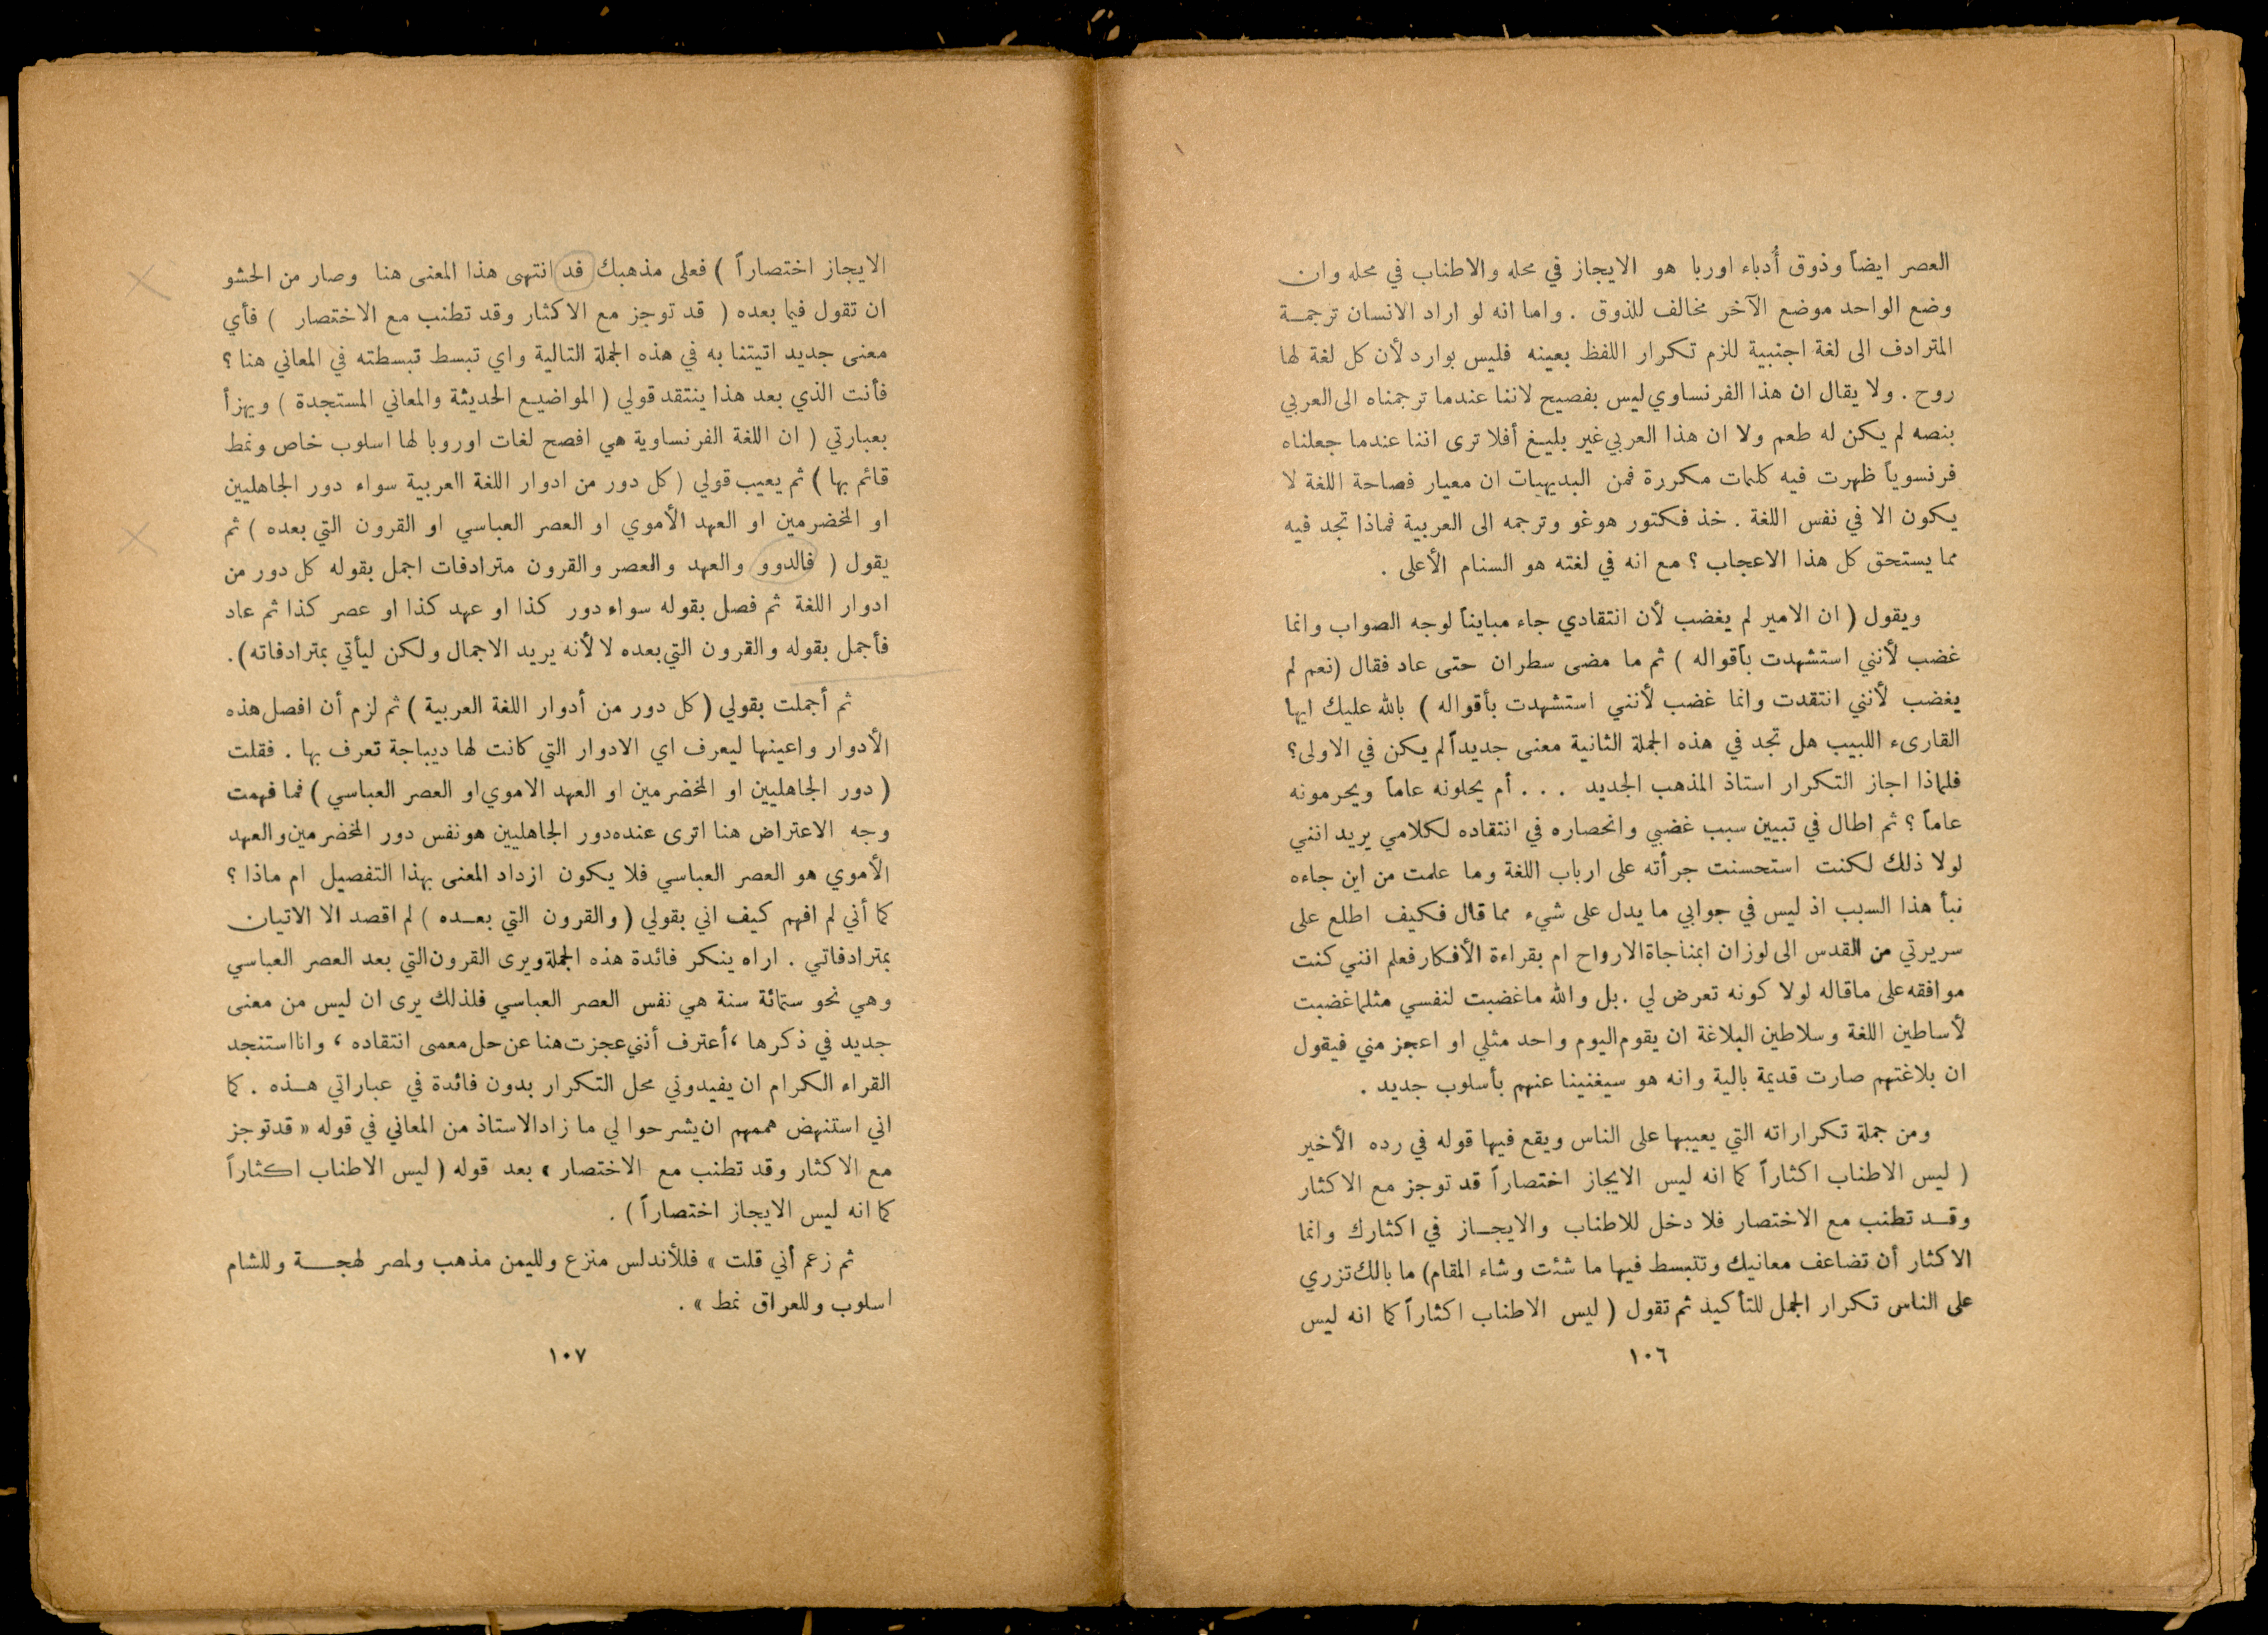 العصر ايضاً وذوق أُدباء اوربا هو الايجاز في محله والاطناب في محله وان
وضع الواحد موضع الآخر مخالف للذوق . واما انه لو اراد الانسان ترجمة
المترادف الى لغة اجنبية للزم تكرار اللفظ بعينه فليس بوارد لأن كل لغة لها
روح . ولا يقال ان هذا الفرنساوي ليس بفصيح لاننا عندما ترجمناه الى العربي
بنصه لم يكن له طعم ولا ان هذا العربي غير بليغ أفلا ترى اننا عندما جعلناه
فرنسوياً ظهرت فيه كلمات مكررة فمن البديهيات ان معيار فصاحة اللغة لا
يكون الا في نفس اللغة . خذ فكتور هوغو وترجمه الى العربية فماذا تجد فيه
مما يستحق كل هذا الاعجاب ؟ مع انه في لغته هو السنام الأعلى .
ويقول ( ان الامير لم يغضب لأن انتقادي جاء مبايناً لوجه الصواب وانما
غضب لأنني استشهدت بأقواله ) ثم ما مضى سطران حتى عاد فقال (نعم لم
يغضب لأنني انتقدت وانما غضب لأنني استشهدت بأقواله ) بالله عليك ايها
القارىء اللبيب هل تجد في هذه الجملة الثانية معنى جديداً لم يكن في الاولى؟
فلماذا اجاز التكرار استاذ المذهب الجديد . . . أم يحلونه عاماً ويحرمونه
عاماً ؟ ثم اطال في تبيين سبب غضبي وانحصاره في انتقاده لكلامي يريد انني
لولا ذلك لكنت استحسنت جرأته على ارباب اللغة وما علمت من اين جاءه
نبأ هذا السبب اذ ليس في جوابي ما يدل على شيء مما قال فكيف اطلع على
سريرتي من القدس الى لوزان ابمناجاة الارواح ام بقراءة الأفكار فعلم انني كنت
موافقه على ماقاله لولا كونه تعرض لي . بل والله ماغضبت لنفسي مثلما غضبت
لأساطين اللغة وسلاطين البلاغة ان يقوم اليوم واحد مثلي او اعجز مني فيقول
ان بلاغتهم صارت قديمة بالية وانه هو سيغنينا عنهم بأسلوب جديد .
ومن جملة تكراراته التي يعيبها على الناس ويقع فيها قوله في رده الأخير
( ليس الاطناب اكثاراً كما انه ليس الايجاز اختصاراً قد توجز مع الاكثار
وقد تطنب مع الاختصار فلا دخل للاطناب والايجاز في اكثارك وانما
الاكثار أن تضاعف معانيك وتتبسط فيها ما شئت وشاء المقام) ما بالك تزري
على الناس تكرار الجمل للتأكيد ثم تقول ( ليس الاطناب اكثاراً كما انه ليس
١٠٦
الايجاز اختصاراً ) فعلى مذهبك قد انتهى هذا المعنى هنا وصار من الحشو
ان تقول فيما بعده ( قد توجز مع الاكثار وقد تطنب مع الاختصار ) فأي
معنى جديد اتيتنا به في هذه الجملة التالية واي تبسط تبسطته في المعاني هنا ؟
فأنت الذي بعد هذا ينتقد قولي ( المواضيع الحديثة والمعاني المستجدة ) ويهزأ
بعبارتي ( ان اللغة الفرنساوية هي افصح لغات اوروبا لها اسلوب خاص ونمط
قائم بها ) ثم يعيب قولي ( كل دور من ادوار اللغة العربية سواء دور الجاهليين
او المخضرمين او العهد الأموي او العصر العباسي او القرون التي بعده ) ثم
يقول ( فالدوو والعهد والعصر والقرون مترادفات اجمل بقوله كل دور من
ادوار اللغة ثم فصل بقوله سواء دور كذا او عهد كذا او عصر كذا ثم عاد
فأجمل بقوله والقرون التي بعده لا لأنه يريد الاجمال ولكن ليأتي بمترادفاته).
ثم أجملت بقولي ( كل دور من أدوار اللغة العربية ) ثم لزم أن افصل هذه
الأدوار واعينها ليعرف اي الادوار التي كانت لها ديباجة تعرف بها . فقلت
( دور الجاهليين او المخضرمين او العهد الاموي او العصر العباسي ) فما فهمت
وجه الاعتراض هنا اترى عنده دور الجاهليين هو نفس دور المخضرمين والعهد
الأموي هو العصر العباسي فلا يكون ازداد المعنى بهذا التفصيل ام ماذا ؟
كما أني لم افهم كيف اني بقولي ( والقرون التي بعده ) لم اقصد الا الاتيان
بمترادفاتي . اراه ينكر فائدة هذه الجملة ويرى القرون التي بعد العصر العباسي
وهي نحو ستمائة سنة هي نفس العصر العباسي فلذلك يرى ان ليس من معنى
جديد في ذكرها ، أعترف أنني عجزت هنا عن حل معمى انتقاده ، وانا استنجد
القراء الكرام ان يفيدوني محل التكرار بدون فائدة في عباراتي هذه . كما
اني استنهض هممهم ان يشرحوا لي ما زاد الاستاذ من المعاني في قوله « قد توجز
مع الاكثار وقد تطنب مع الاختصار » بعد قوله ( ليس الاطناب اكثاراً
كما انه ليس الايجاز اختصاراً ) .
ثم زعم أني قلت » فللأندلس منزع ولليمن مذهب ولمصر لهجة وللشام
اسلوب وللعراق نمط » .
١٠٧